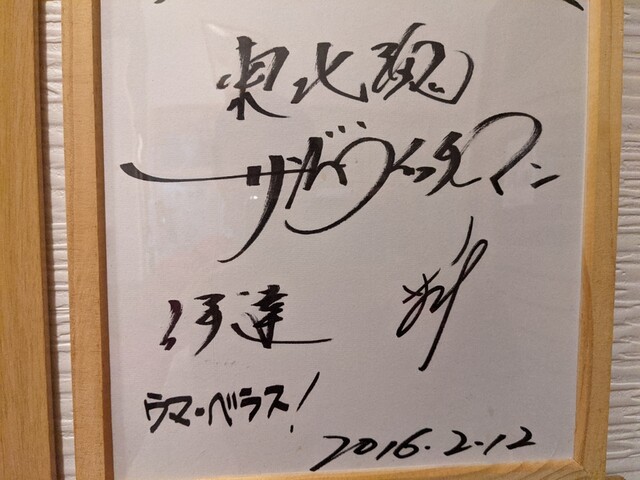 東北魂
サンドウィッチマン
伊達
ウマ・ベラス!
2016.2.12